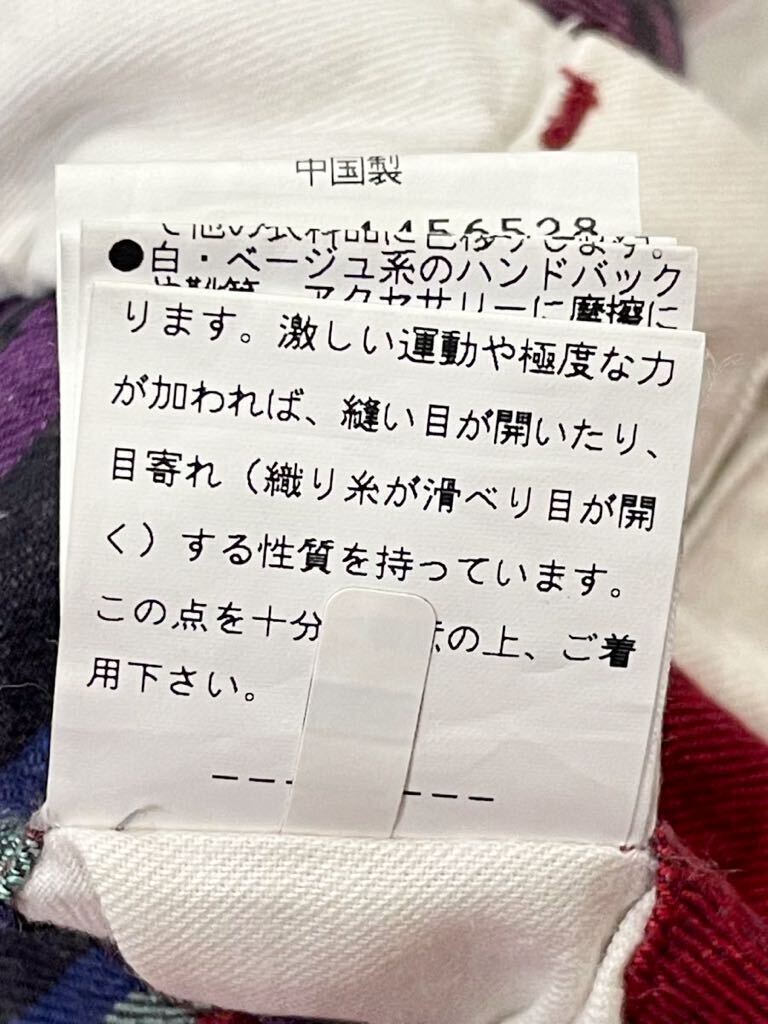 中国製
456528
て他の衣料品に色移りします。
●白・ベージュ系のハンドバック
や靴等、アクセサリーに摩擦に
ります。激しい運動や極度な力
が加われば、縫い目が開いたり、
目寄れ（織り糸が滑べり目が開
く）する性質を持っています。
この点を十分 の上、ご着
用下さい。